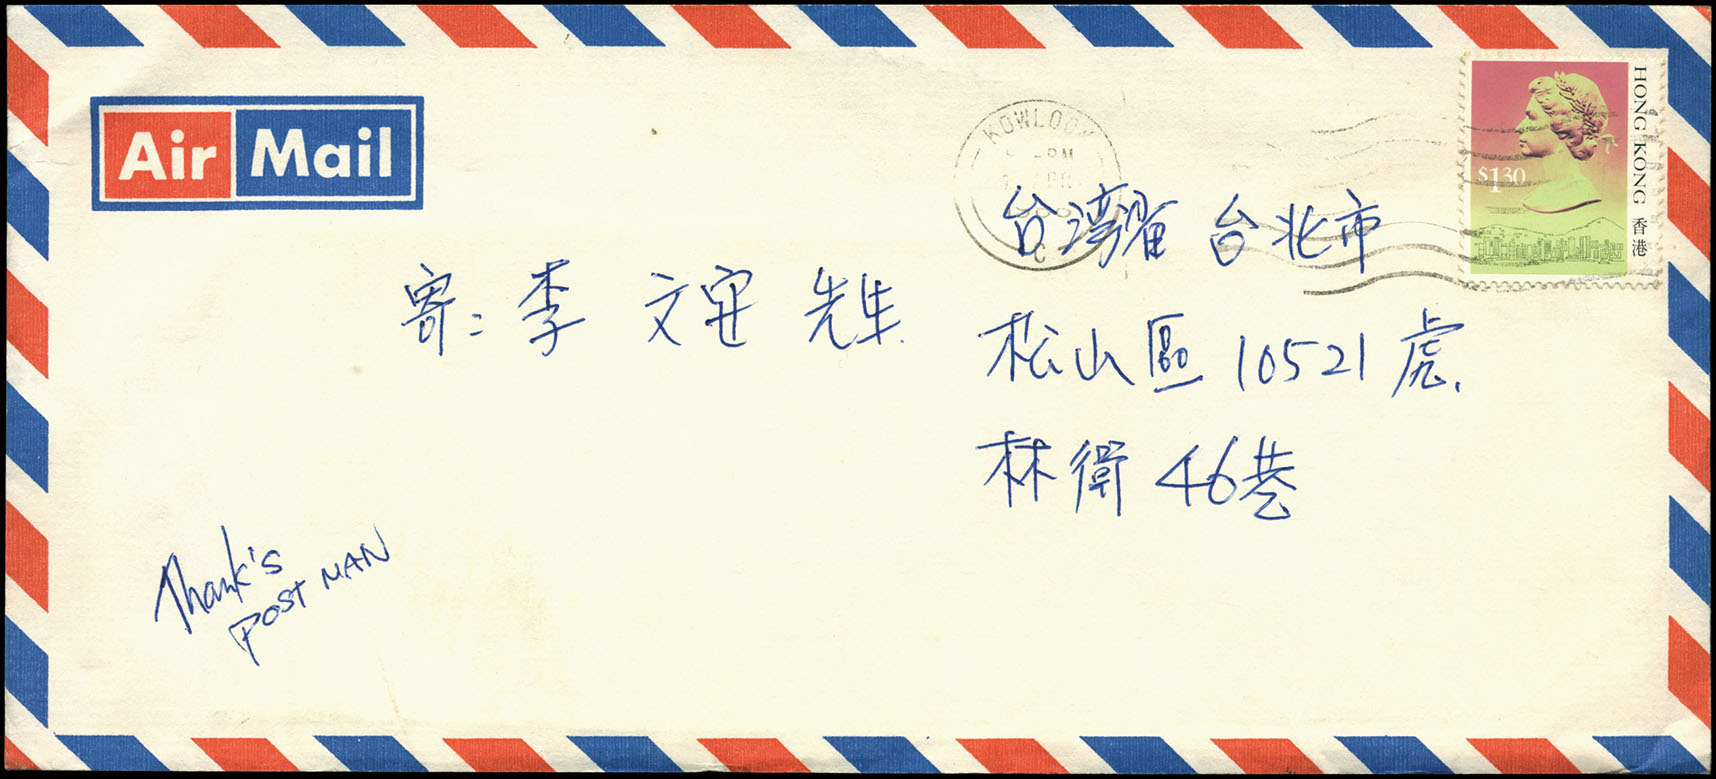 Air Mail
KOWLOON
HONG KONG 香港
$1.30
台湾省 台北市
松山區 10521 虎
林街 46巷
寄: 李 文安 先生
Thank's
POST MAN